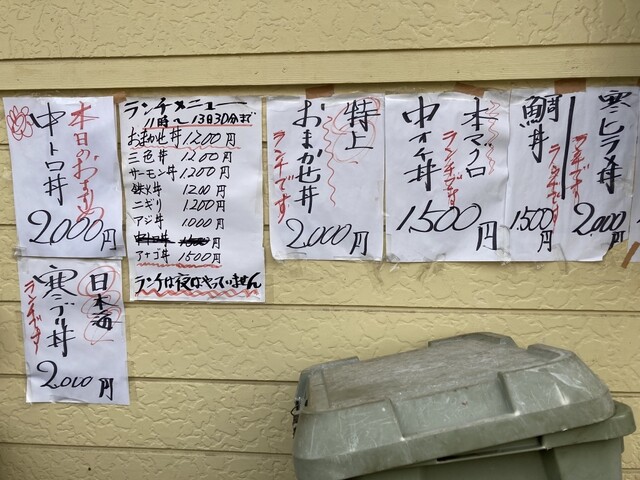 本日のおすすめ
中トロ丼
2,000円
日本海
寒ブリ丼
ランチです
2,000円
ランチメニュー
11時～13時30分まで
おまかせ丼 1200円
三色丼 1200円
サーモン丼 1200円
鉄火丼 1200円
ニギリ 1200円
アジ丼 1000円
アナゴ丼 1500円
ランチは夜はやっていません
特上
おまかせ丼
ランチです
2,000円
本マグロ
ランチです
中オチ丼
1,500円
鯛丼
ランチです
1,500円
寒ヒラメ丼
ランチです
2,000円